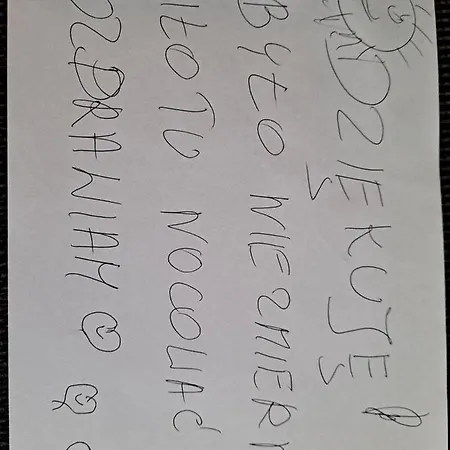 DZIĘKUJĘ
BYŁO NIEZMIERN
IŁO TU NOCOWAĆ
OZDRAWIAM